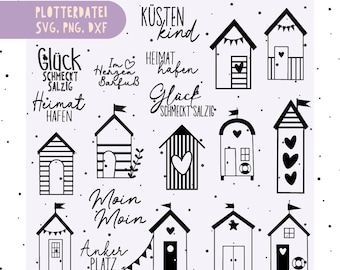 PLOTTERDATEI
SVG, PNG, DXF
KÜSTEN
kind
Glück
SCHMECKT
SALZIG
Im
Herzen
Barfuß
HEIMAT
hafen
Heimat
HAFEN
Glück
SCHMECKT SALZIG
Moin
Moin
Anker
PLATZ